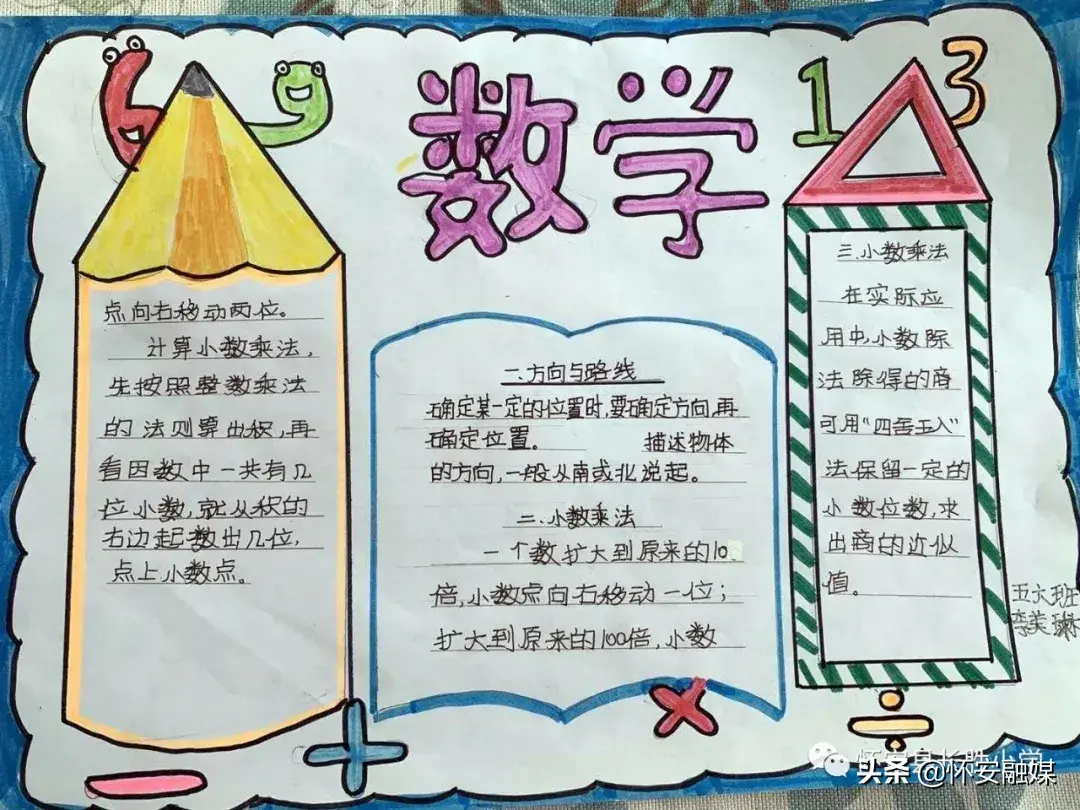 69
数学
13
一.方向与路线
确定某一定的位置时,要确定方向,再
确定位置。 描述物体
的方向,一般从南或北说起。
二.小数乘法
一个数扩大到原来的10
倍,小数点向右移动一位;
扩大到原来的100倍,小数
点向右移动两位。
计算小数乘法,
先按照整数乘法
的法则算出积,再
看因数中一共有几
位小数,就从积的
右边起数出几位,
点上小数点。
三.小数乘法
在实际应
用中,小数除
法除得的商
可用"四舍五入"
法保留一定的
小数位数,求
出商的近似
值。
五大班
李美琳
+
−
×
÷
怀安县长胜小学
头条 @怀安融媒